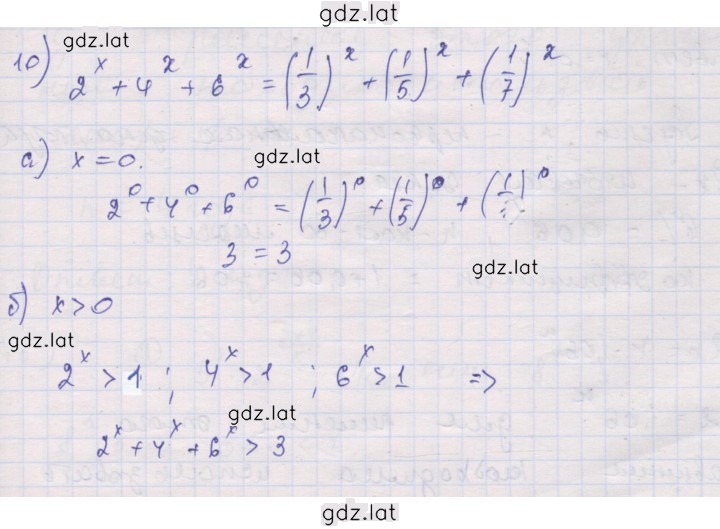 gdz.lat
gdz.lat
10) 2^x + 4^x + 6^x = (1/3)^x + (1/5)^x + (1/7)^x
а) x = 0.
gdz.lat
2^0 + 4^0 + 6^0 = (1/3)^0 + (1/5)^0 + (1/7)^0
3 = 3
gdz.lat
б) x > 0
gdz.lat
2^x > 1 ; 4^x > 1 ; 6^x > 1 =>
gdz.lat
2^x + 4^x + 6^x > 3
gdz.lat